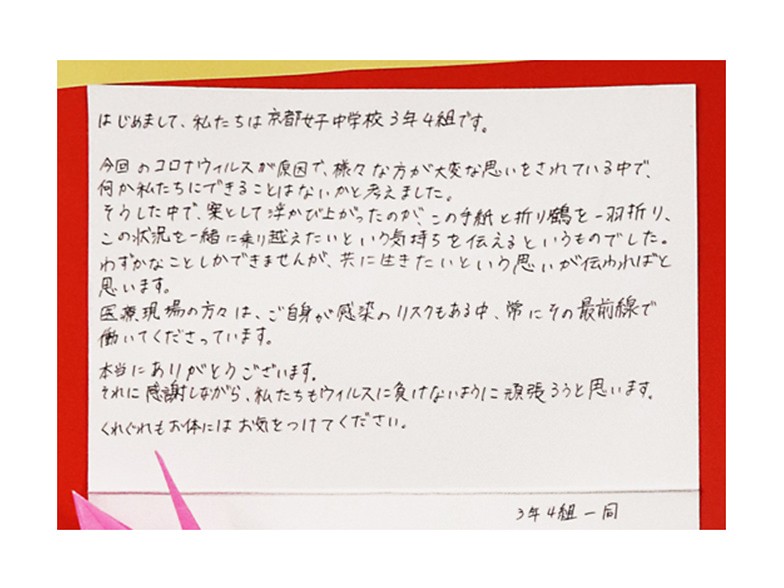 はじめまして、私たちは京都女子中学校3年4組です。
今回のコロナウィルスが原因で、様々な方が大変な思いをされている中で、
何か私たちにできることはないかと考えました。
そうした中で、案として浮かび上がったのが、この手紙と折り鶴を一羽折り、
この状況を一緒に乗り越えたいという気持ちを伝えるというものでした。
わずかなことしかできませんが、共に生きたいという思いが伝わればと
思います。
医療現場の方々は、ご自身が感染のリスクもある中、常にその最前線で
働いてくださっています。
本当にありがとうございます。
それに感謝しながら、私たちもウィルスに負けないように頑張ろうと思います。
くれぐれもお体にはお気をつけてください。
3年4組一同